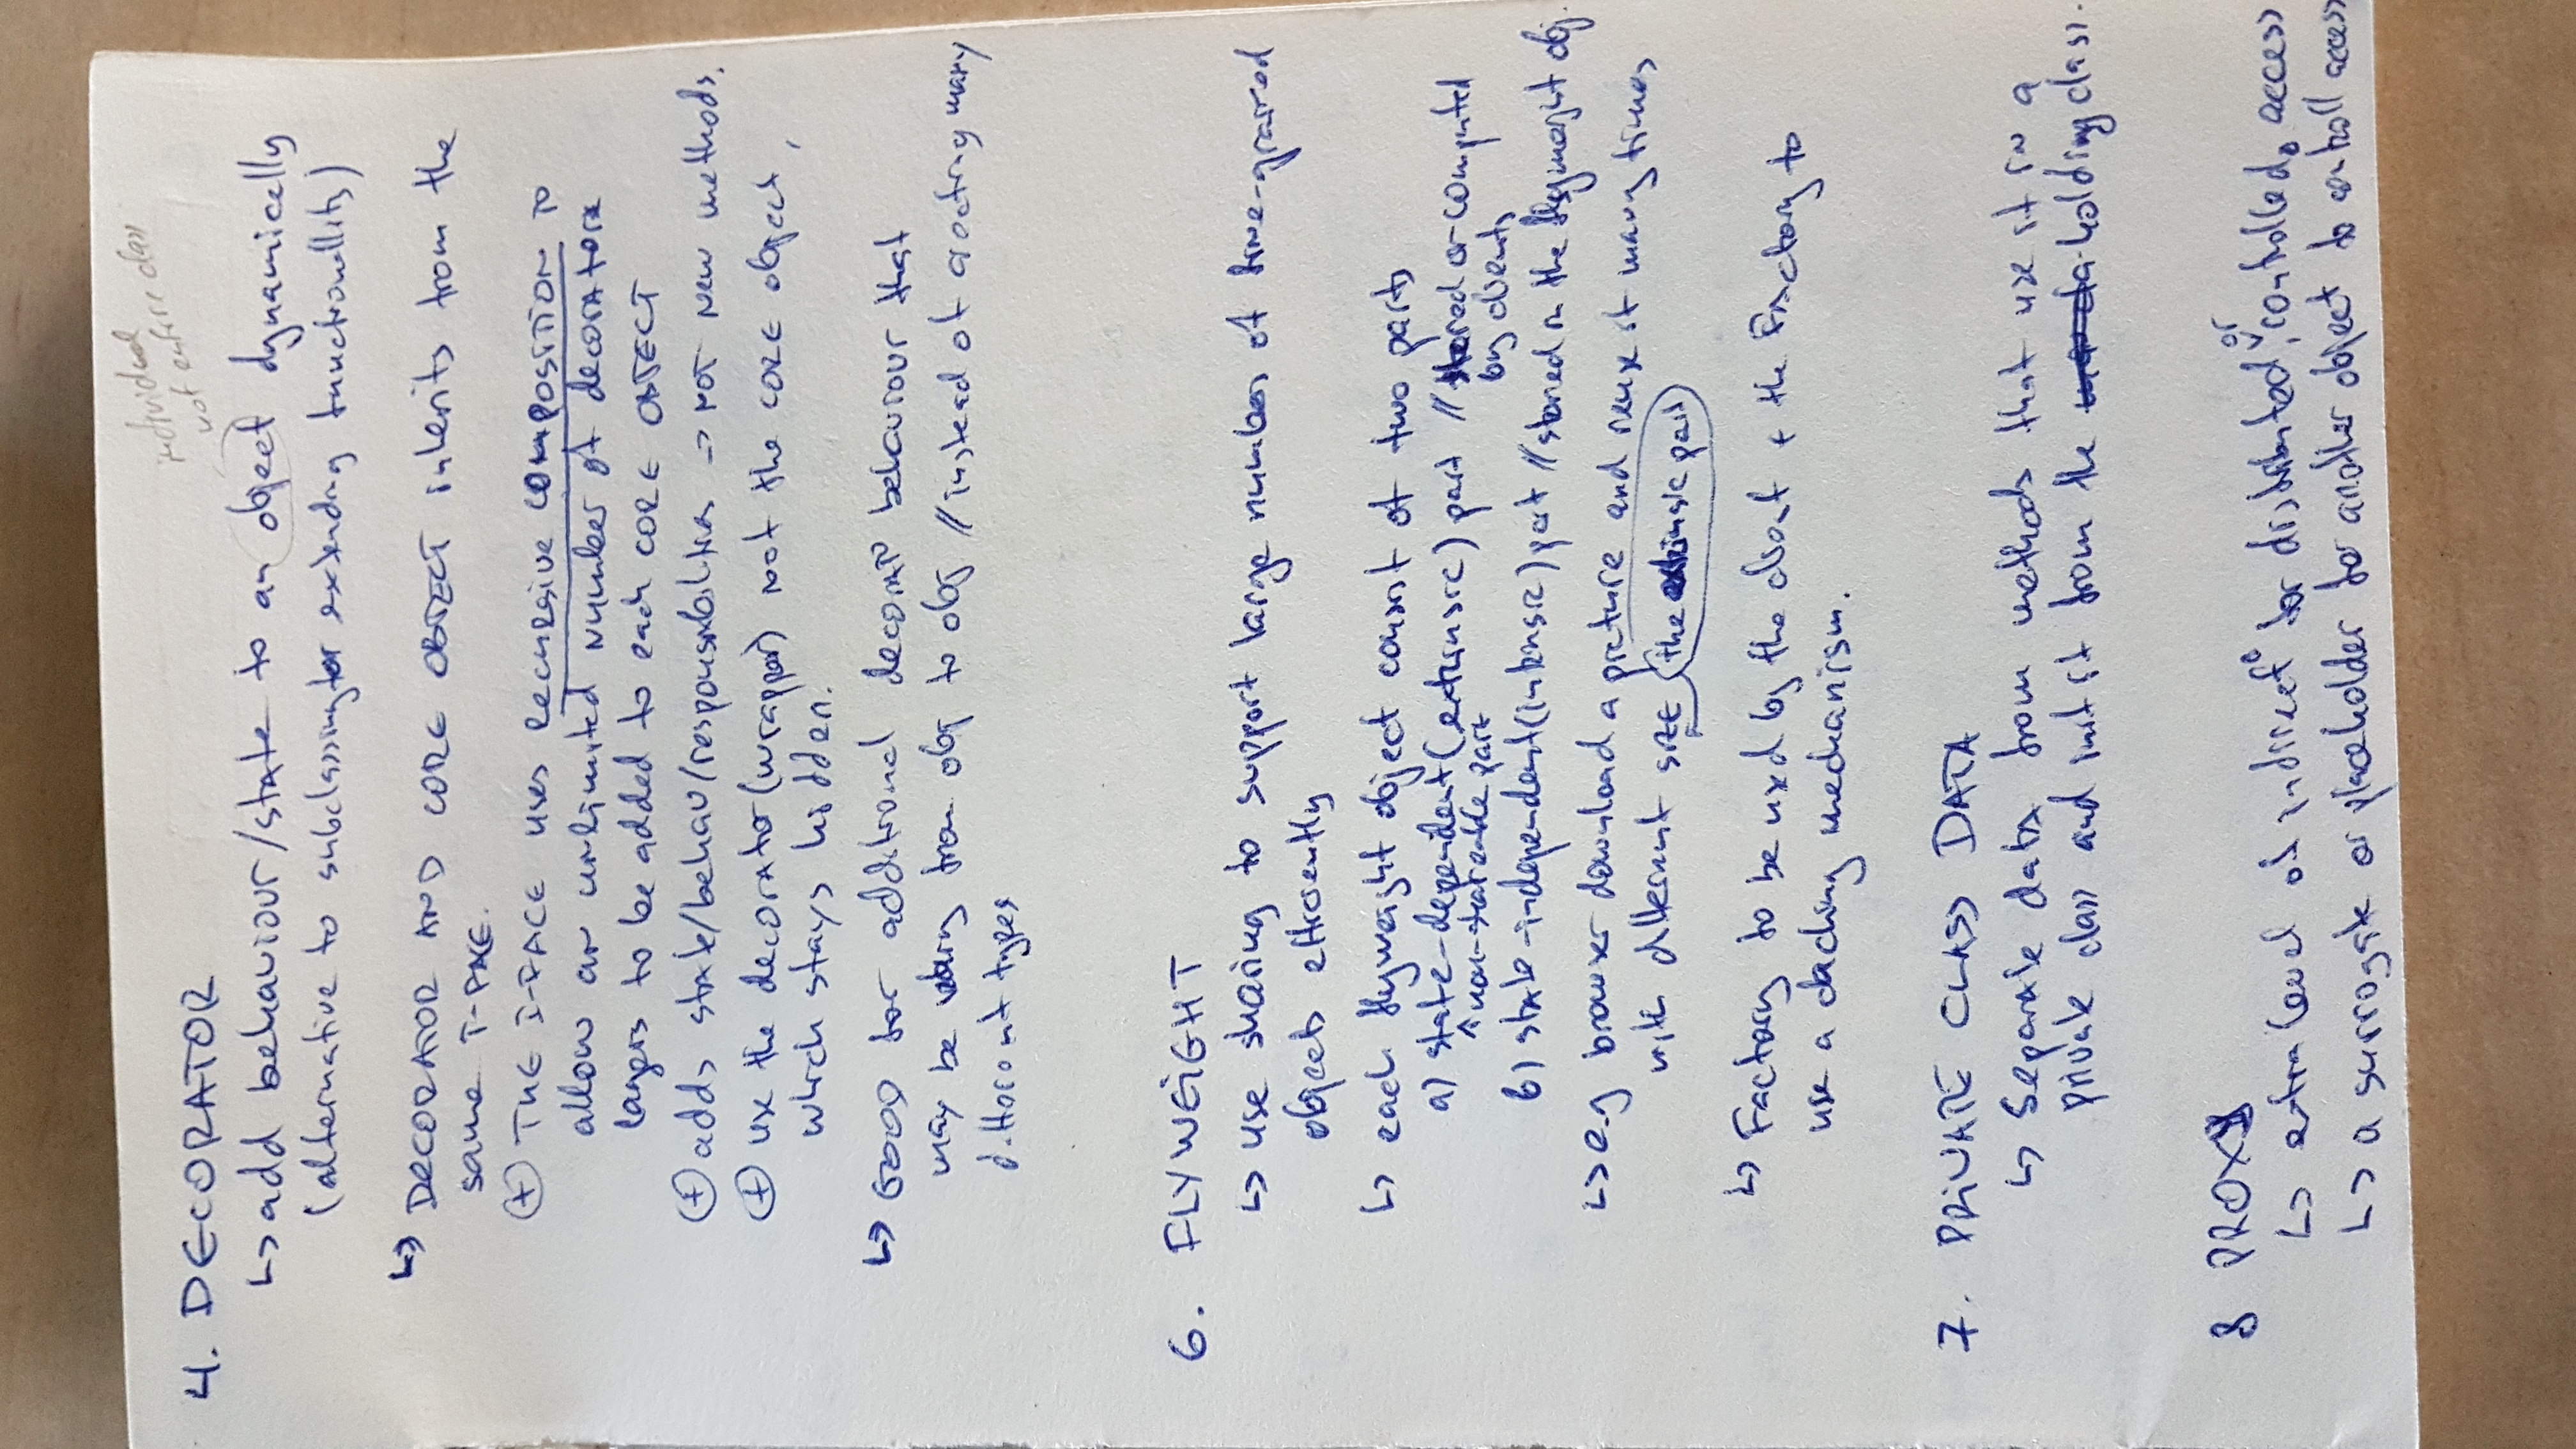 individual
not entire class
4. DECORATOR
↳ add behaviour/state to an object dynamically
(alternative to subclassing for extending functionallity)
↳ DECORATOR AND CORE OBJECT inherits from the
same I-FACE.
⊕ THE I-FACE uses RECURSIVE COMPOSITION TO
allow an unlimited number of decorators
layers to be added to each CORE OBJECT
⊕ adds state/behav/responsibilities → NOT New methods.
⊕ use the decorator (wrapper) not the CORE object,
which stays hidden.
↳ GOOD for additional behaviour that
may be vary from obj to obj // instead of creating many
different types
6. FLYWEIGHT
↳ use sharing to support large numbers of fine-grained
objects efficiently
↳ each flyweight object consist of two parts
a) state-dependent (extrinsic) part // stored or computed
^ non-shareable part by clients
b) state-independent (intrinsic) part // stored in the flyweight obj.
↳ e.g browser download a picture and reuse it many times
with different size (the extrinsic part)
↳ Factory to be used by the client + the Factory to
use a caching mechanism.
7. PRIVATE CLASS DATA
↳ Separate data from methods that use it in a
private class and init it from the holding class.
8 PROXY
↳ extra level of indirect° for distributed, or controlled access
↳ a surrogate or placeholder for another object to controll access